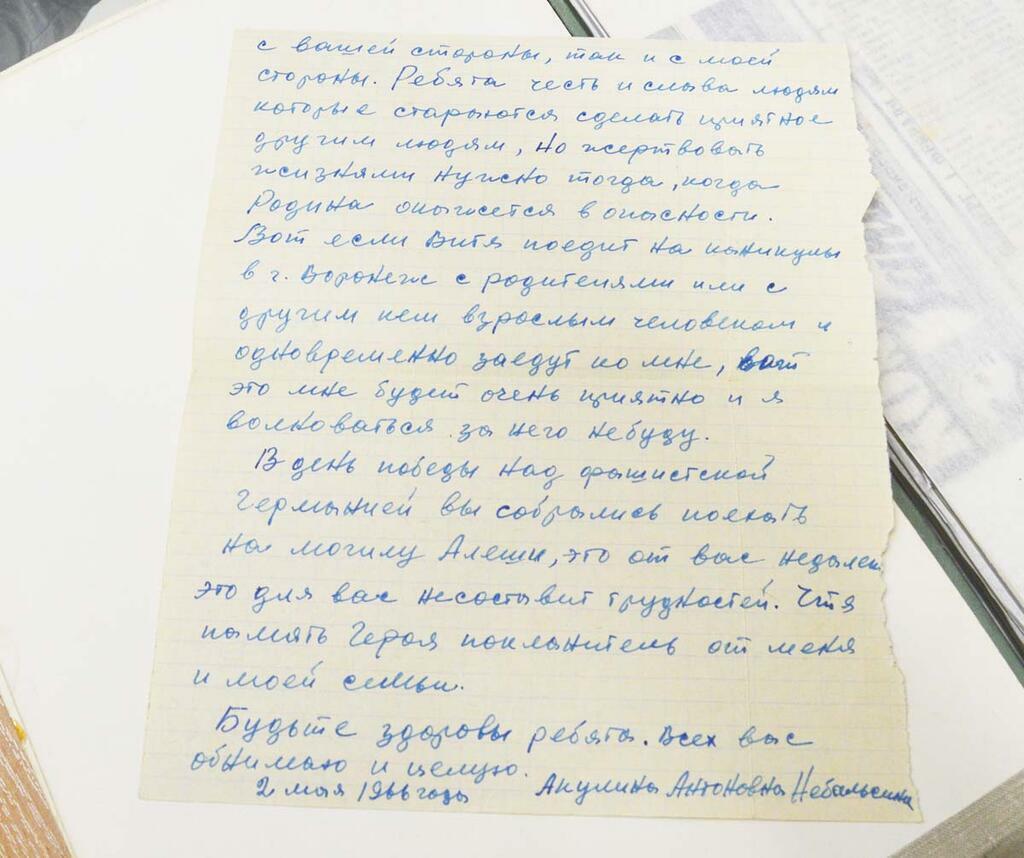 с вашей стороны, так и с моей
стороны. Ребята честь и слава людям
которые стараются сделать приятное
другим людям, но жертвовать
жизнями нужно тогда, когда
Родина окажется в опасности.
Вот если Витя поедит на каникулы
в г. Воронеж с родителями или с
другим кем взрослым человеком и
одновременно заедут ко мне, вот
это мне будет очень приятно и я
волноваться за него небуду.
В день победы над фашистской
Германией вы собрались поехать
на могилу Алеши, это от вас недалек
это для вас несоставит трудностей. Чтя
память Героя поклонитель от меня
и моей семьи.
Будьте здоровы ребята. Всех вас
обнимаю и целую.
2 мая 1966 года Акулина Антоновна Небальсина